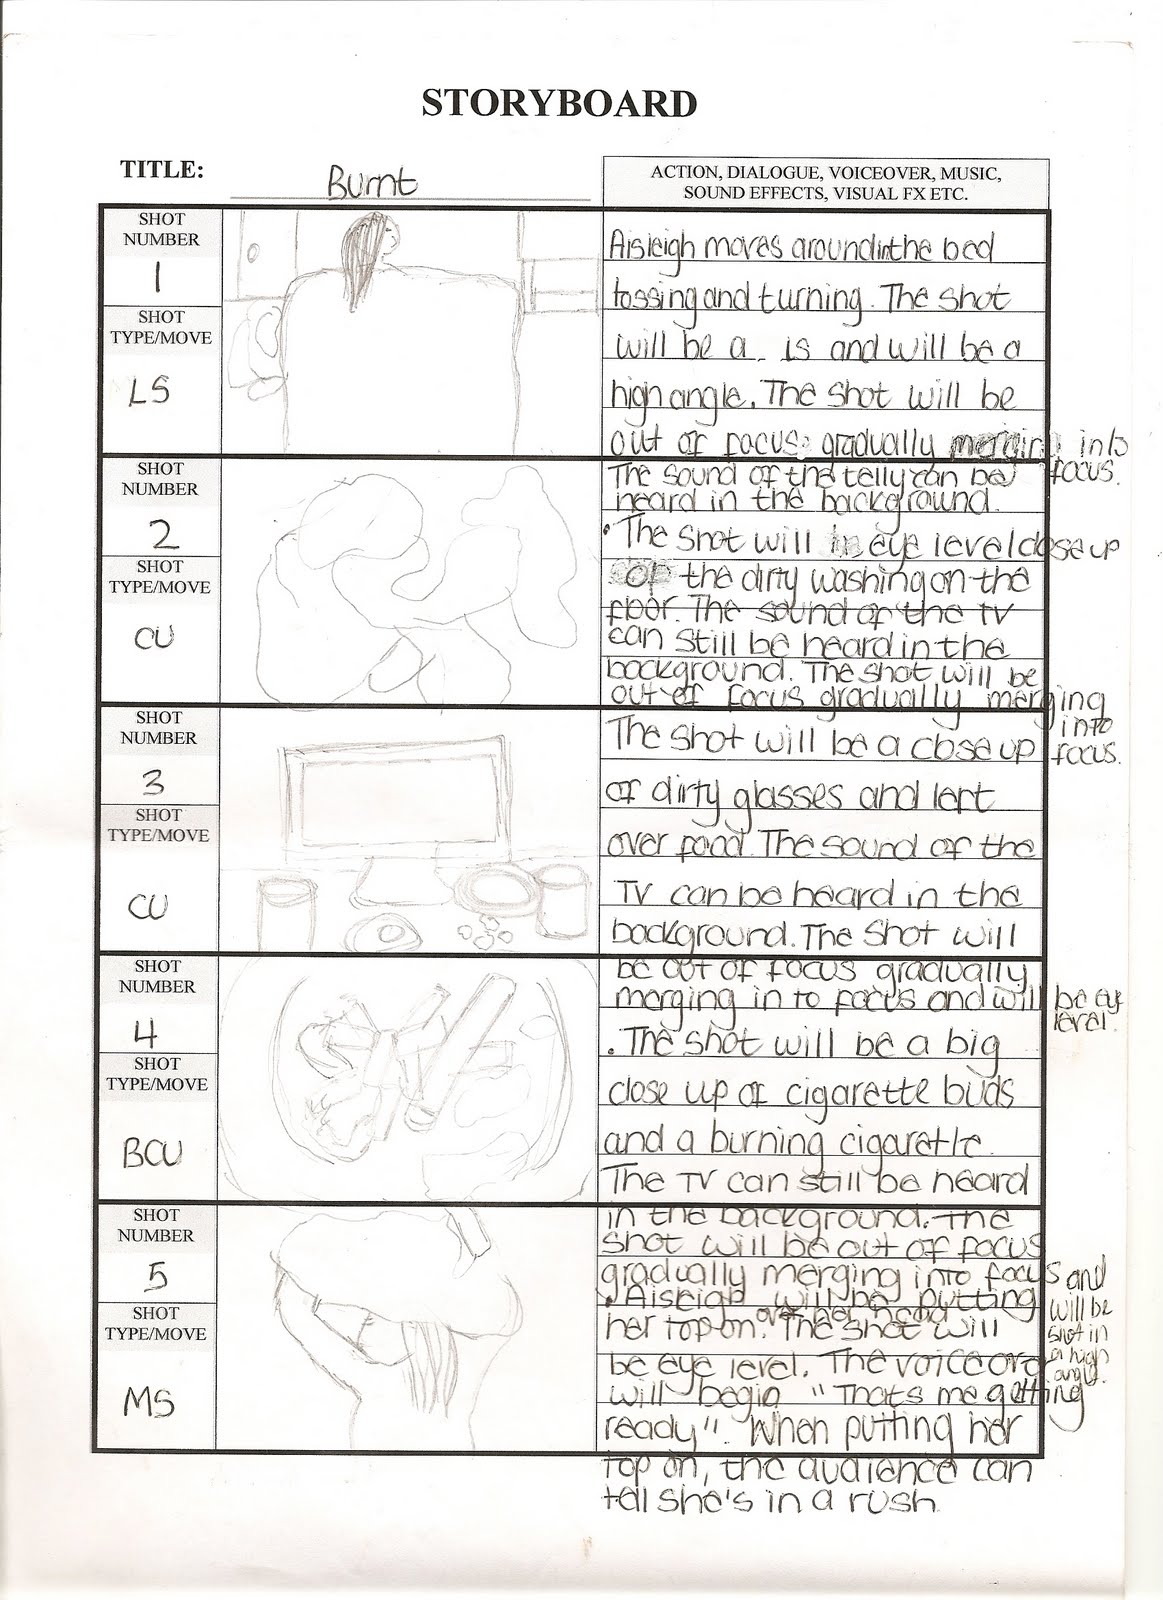 STORYBOARD
TITLE: Burnt
ACTION, DIALOGUE, VOICEOVER, MUSIC,
SOUND EFFECTS, VISUAL FX ETC.
SHOT
NUMBER
1
SHOT
TYPE/MOVE
LS
Aisleigh moves around in the bed
tossing and turning. The shot
will be a is and will be a
high angle. The shot will be
out of focus gradually merging into
focus.
The sound of the telly can be
heard in the background.
SHOT
NUMBER
2
SHOT
TYPE/MOVE
CU
The shot will in eye level close up
of the dirty washing on the
floor. The sound of the TV
can still be heard in the
background. The shot will be
out of focus gradually merging
into
focus.
SHOT
NUMBER
3
SHOT
TYPE/MOVE
CU
The shot will be a close up
of dirty glasses and left
over food. The sound of the
TV can be heard in the
background. The shot will
be out of focus gradually
merging in to focus and will be eye
level.
SHOT
NUMBER
4
SHOT
TYPE/MOVE
BCU
. The shot will be a big
close up of cigarette buds
and a burning cigarette.
The TV can still be heard
in the background. The
shot will be out of focus
gradually merging into focus and
will be
shot in
a high
angle.
SHOT
NUMBER
5
SHOT
TYPE/MOVE
MS
Aisleigh will be putting
her top on. over her head The shot will
be eye level. The voice over
will begin "Thats me getting
ready". When putting her
top on, the audience can
tell she's in a rush